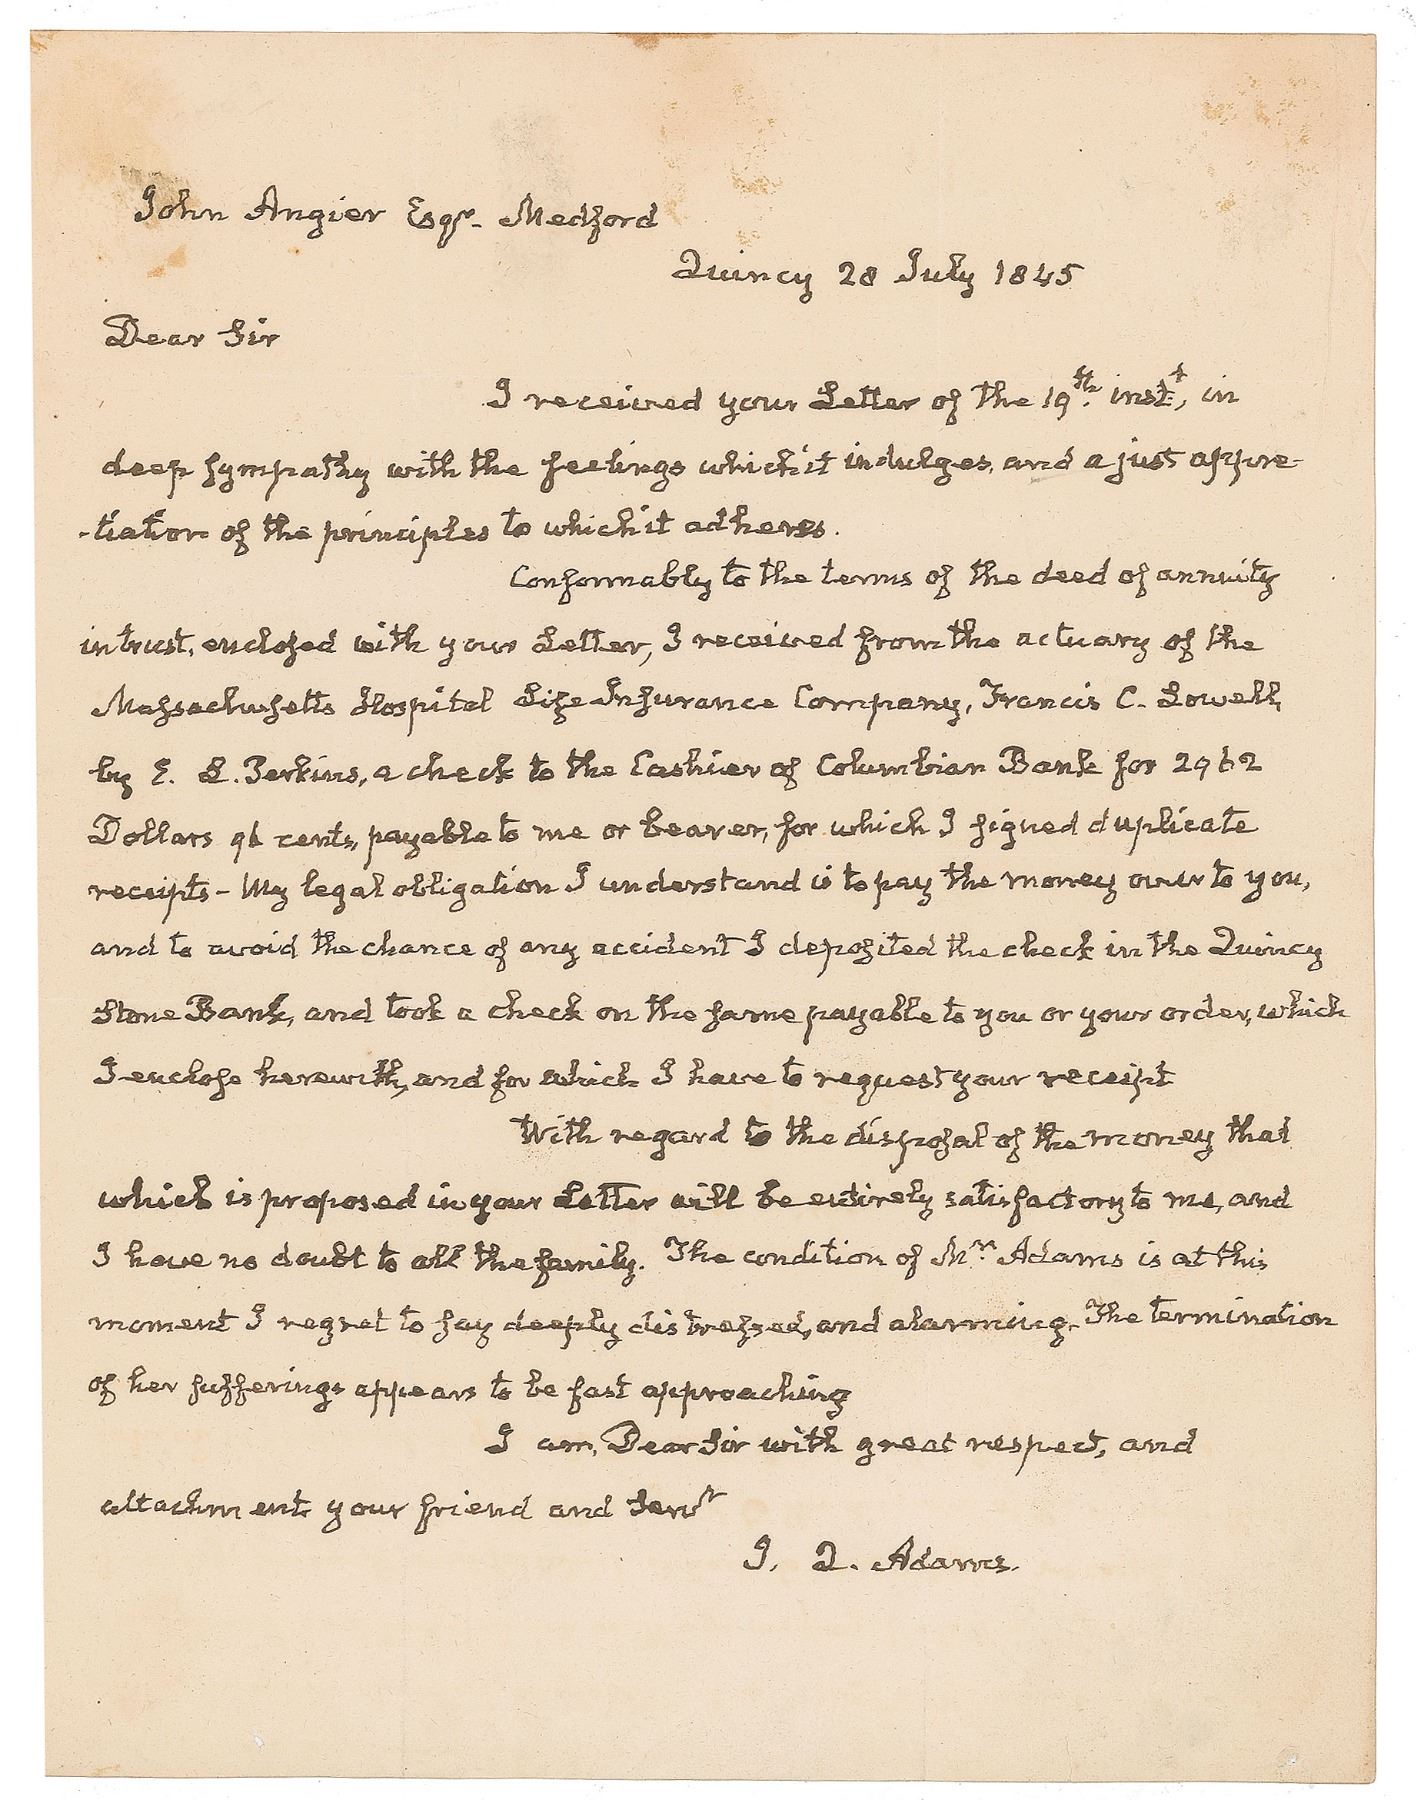 John Angier Esqr. Medford
Quincy 28 July 1845
Dear Sir
I received your Letter of the 19th. instt, in
deep sympathy with the feelings which it indulges, and a just appre-
-tiation of the principles to which it adheres.
Conformably to the terms of the deed of annuity
in trust, enclosed with your Letter, I received from the actuary of the
Massachusetts Hospital Life Insurance Company, Francis C. Lowell,
by E. L. Perkins, a check to the Cashier of Columbian Bank for 2962
Dollars 96 cents, payable to me or bearer, for which I signed duplicate
receipts - My legal obligation I understand is to pay the money over to you,
and to avoid the chance of any accident I deposited the check in the Quincy
Stone Bank, and took a check on the same payable to you or your order, which
I enclose herewith, and for which I have to request your receipt
With regard to the disposal of the money that
which is proposed in your Letter will be entirely satisfactory to me, and
I have no doubt to all the family. The condition of Mrs Adams is at this
moment I regret to say deeply distressed, and alarming. The termination
of her sufferings appears to be fast approaching
I am, Dear Sir with great respect, and
attachment your friend and Servt
J. Q. Adams.